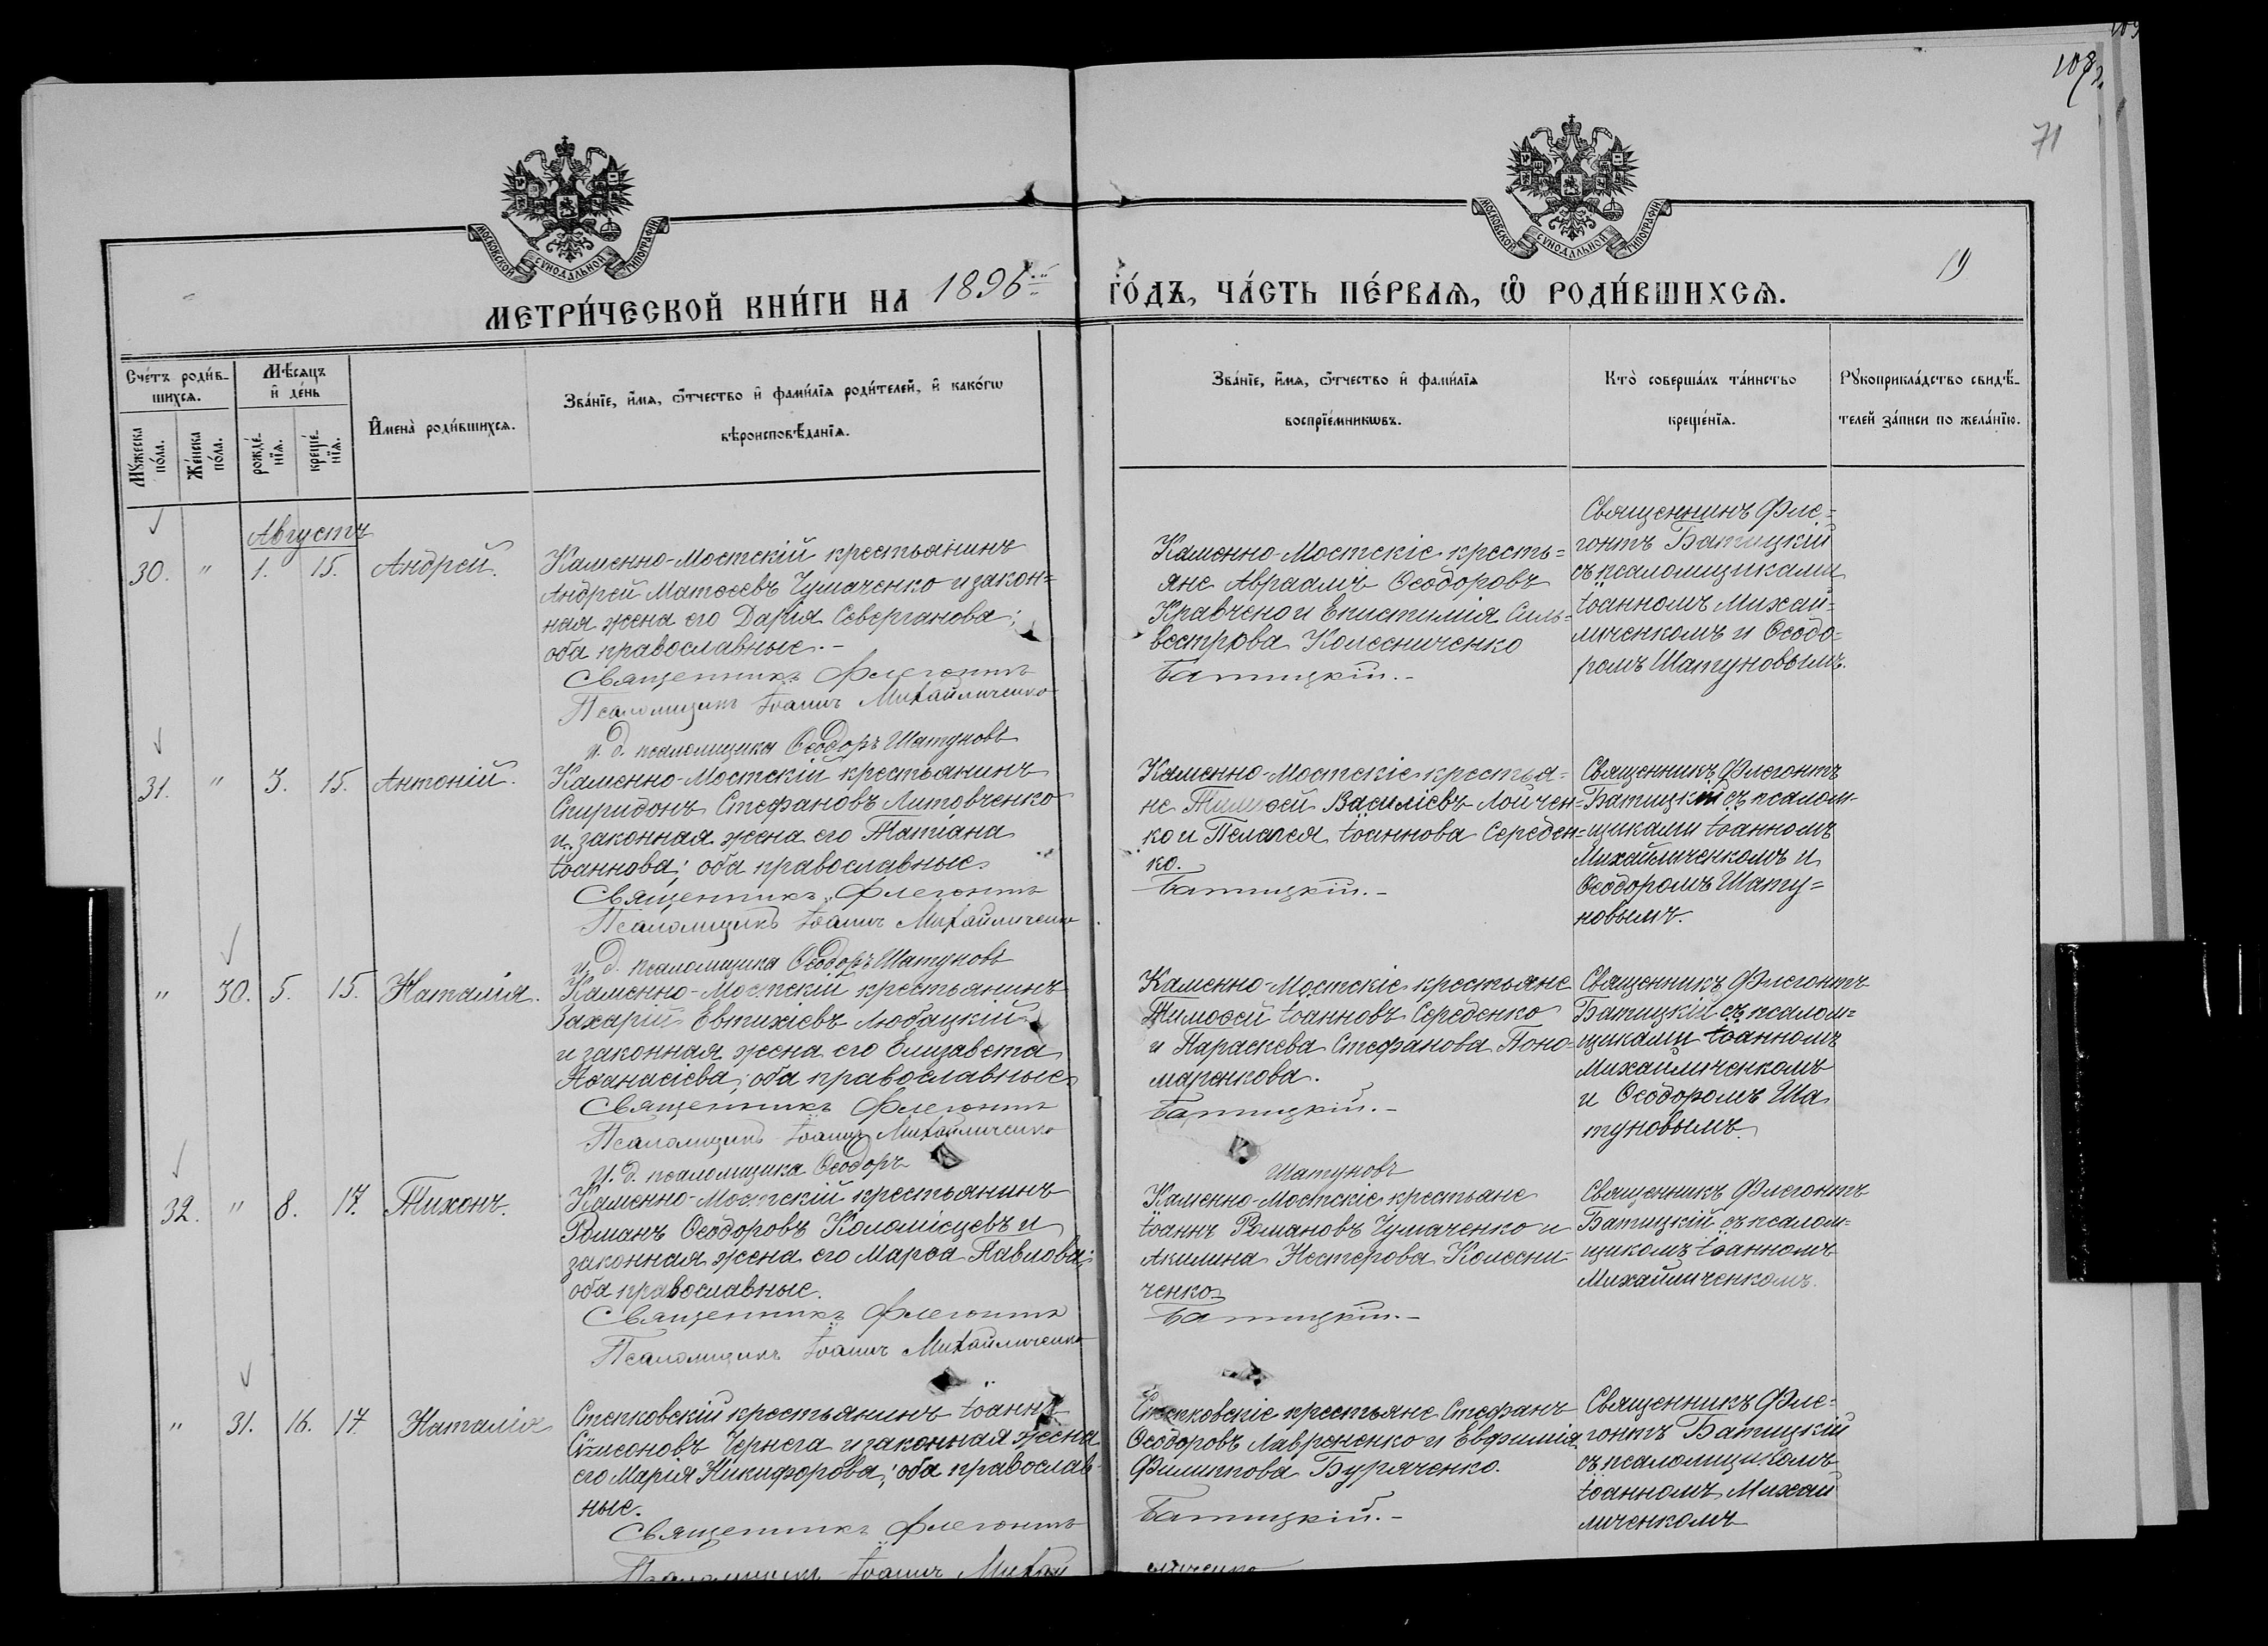 108
71
19
МОСКОВСКОЙ СѴНОДАЛЬНОЙ ТИПОГРАФІИ
МОСКОВСКОЙ СѴНОДАЛЬНОЙ ТИПОГРАФІИ
МЕТРИ́ЧЕСКОЙ КНИ́ГИ НА 1896й ГО́ДЪ, ЧА́СТЬ ПЕ́РВАѦ, Ѡ҆ РОДИ́ВШИХСѦ.
Сче́тъ роди́в-
шихсѧ.
Мꙋ́жеска
по́ла.
Же́нска
по́ла.
Мѣ́сѧцъ
и҆ де́нь
рожде́-
нїѧ.
креще́-
нїѧ.
И҆мена̀ роди́вшихсѧ.
Зва́нїе, и҆́мѧ, ѻ҆́тчество и҆ фами́лїѧ роди́телей, и҆ како́гѡ
вѣроисповѣ́данїѧ.
Зва́нїе, и҆́мѧ, ѻ҆́тчество и҆ фами́лїѧ
воспрїе́мникѡвъ.
Кто̀ соверша́лъ та́инство
креще́нїѧ.
Рꙋкоприкла́дство свидѣ́-
телей за́писи по жела́нїю.
Августъ
30. " 1. 15. Андрей.
Каменно-Мостскій крестьянинъ
Андрей Матѳеевъ Чумаченко и закон=
ная жена его Дарія Северганова;
оба православные.-
Священникъ Флегонтъ
Псаломщикъ Іоаннъ Михайличенко
и. д. псаломщика Ѳеодоръ Шатуновъ
Каменно-Мостскіе кресть=
яне Авраамъ Ѳеодоровъ
Кравчено и Епистимія Силь=
вестрова Колесниченко
Батицкій.-
Священникъ Фле=
гонтъ Батицкій
съ псаломщиками
Іоанномъ Михай=
личенкомъ и Ѳеодо=
ромъ Шатуновымъ.
31. " 3. 15. Антоній.
Каменно-Мостскій крестьянинъ
Спиридонъ Стефановъ Литовченко
и законная жена его Татіана
Іоаннова; оба православные.
Священникъ Флегонтъ
Псаломщикъ Іоаннъ Михайличенко
и. д. псаломщика Ѳеодоръ Шатуновъ
Каменно-Мостскіе крестья=
не Тимоѳей Василіевъ Лойчен=
ко и Пелагея Іоаннова Середен=
ко.
Батицкій.-
Священникъ Флегонтъ
Батицкій съ псалом-
щиками Іоанномъ
Михайличенкомъ и
Ѳеодоромъ Шату=
новымъ.
" 30. 5. 15. Наталія.
Каменно-Мостскій крестьянинъ
Захарій Евтихіевъ Любацкій
и законная жена его Елизавета
Аѳанасіева; оба православные
Священникъ Флегонтъ
Псаломщикъ Іоаннъ Михайличенко
И. д. псаломщика Ѳеодоръ
Каменно-Мостскіе крестьяне
Тимоѳей Іоанновъ Середенко
и Параскева Стефанова Поно=
маренкова.
Батицкій.-
Шатуновъ
Священникъ Флегонтъ
Батицкій съ псалом=
щиками Іоанномъ
Михайличенкомъ
и Ѳеодоромъ Ша
туновымъ.
32. " 8. 17. Тихонъ.
Каменно-Мостскій крестьянинъ
Романъ Ѳеодоровъ Коломісцевъ и
законная жена его Марѳа Павлова;
оба православные.
Священникъ Флегонтъ
Псаломщикъ Іоаннъ Михайличенко
Каменно-Мостскіе крестьяне
Іоаннъ Романовъ Чумаченко и
Акилина Нестерова Колесни-
ченко
Батицкій.-
Священникъ Флегонтъ
Батицкій съ псалом=
щикомъ Іоанномъ
Михайличенкомъ.
" 31. 16. 17. Наталія
Степковскій крестьянинъ Іоаннъ
Сѵмеоновъ Чернега и законная жена
его Марія Никифорова; оба православ-
ные.
Священникъ Флегонтъ
Псаломщикъ Іоаннъ Михай
Степковскіе крестьяне Стефанъ
Ѳеодоровъ Лавроненко и Евфимія
Филиппова Буряченко.
Батицкій.-
личенко
Священникъ Фле=
гонтъ Батицкій
съ псаломщикомъ
Іоанномъ Михай
личенкомъ